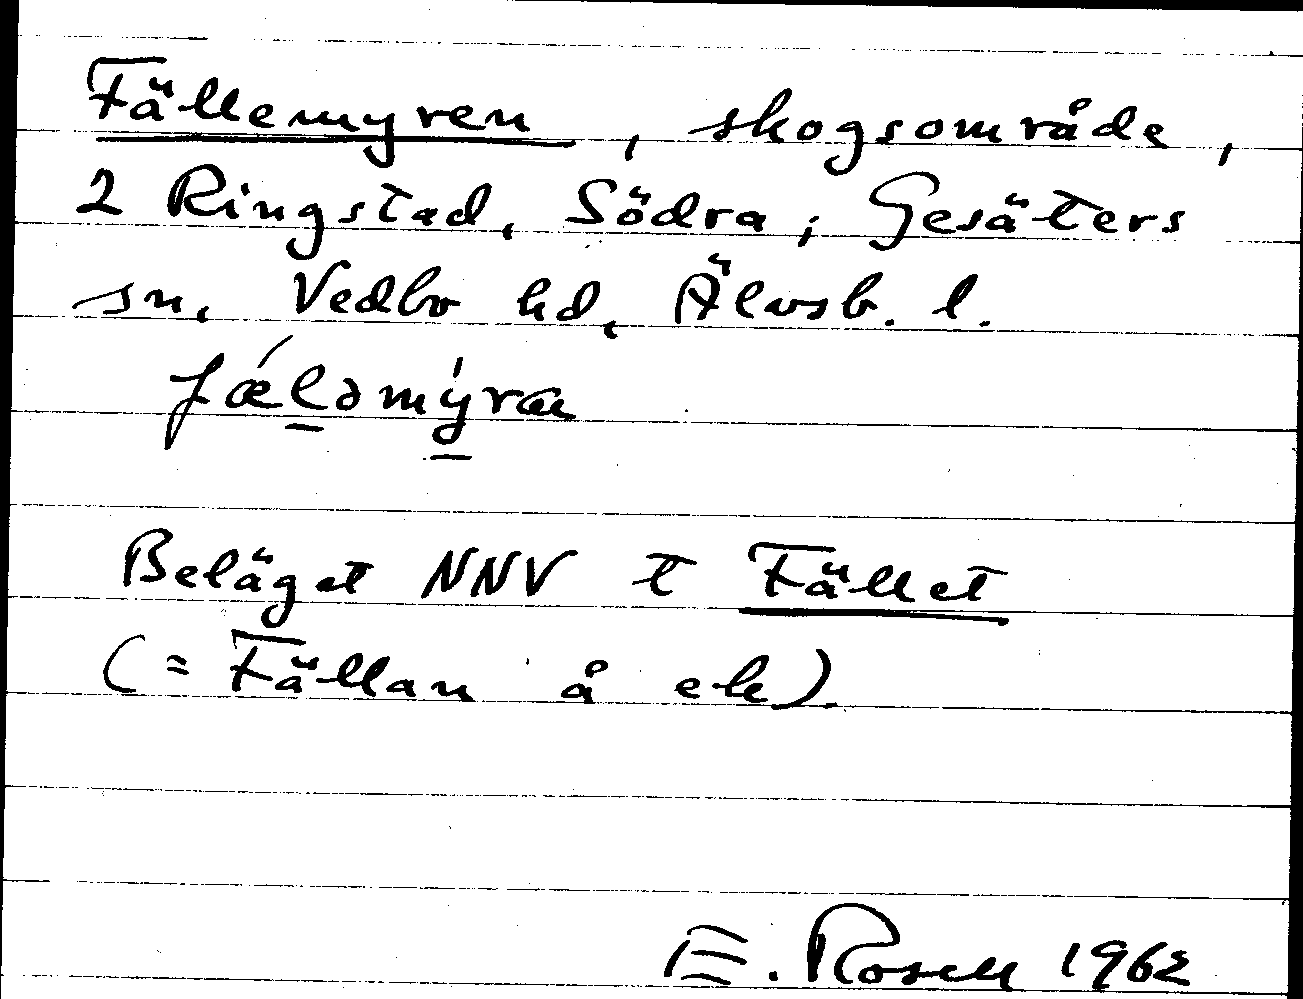 Fällemyren, skogsområde,
2 Ringstad, Södra; Gesäters
sn, Vedbo hd, Älvsb. l.
fǽləmýra
Beläget NNV t Fället
(= Fällan å ek).
E. Rosell 1962